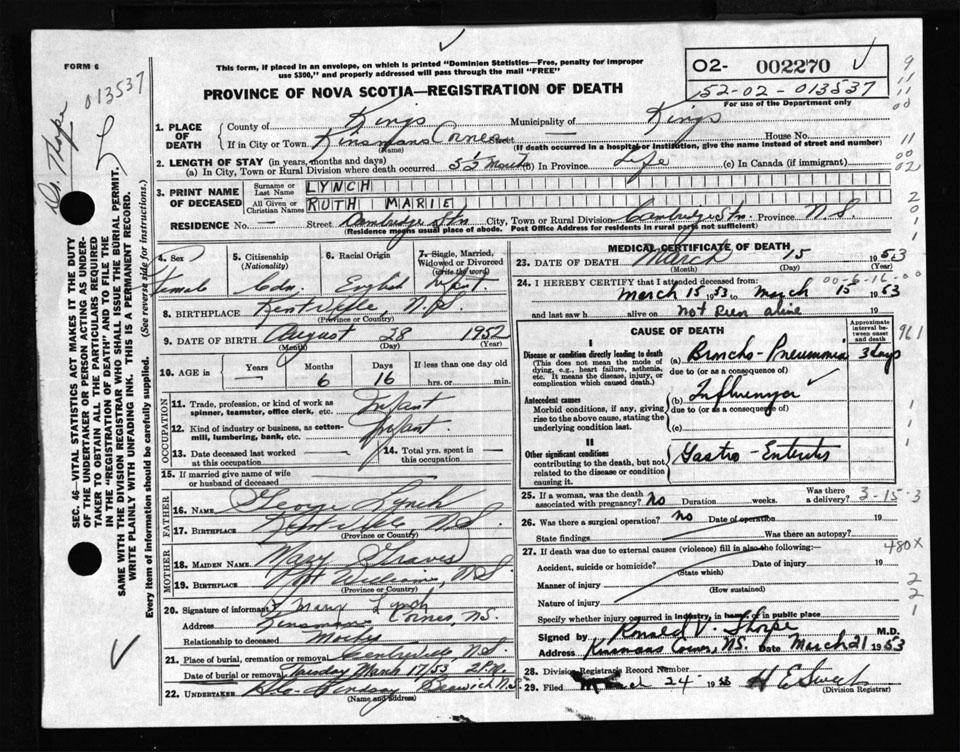 FORM 6
This form, if placed in an envelope, on which is printed "Dominion Statistics—Free, penalty for improper
use $300," and properly addressed will pass through the mail "FREE"
PROVINCE OF NOVA SCOTIA—REGISTRATION OF DEATH
02- 002270
52-02-013537
For use of the Department only
013537
SEC. 46—VITAL STATISTICS ACT MAKES IT THE DUTY
OF THE UNDERTAKER OR PERSON ACTING AS UNDER-
TAKER TO OBTAIN ALL THE PARTICULARS REQUIRED
IN THE "REGISTRATION OF DEATH" AND TO FILE THE
SAME WITH THE DIVISION REGISTRAR WHO SHALL ISSUE THE BURIAL PERMIT.
WRITE PLAINLY WITH UNFADING INK. THIS IS A PERMANENT RECORD.
Every item of information should be carefully supplied. (See reverse side for instructions.)
1. PLACE OF DEATH
County of Kings Municipality of Kings
If in City or Town Kinsmans Corner Street House No.
(Name) (If death occurred in a hospital or institution, give the name instead of street and number)
2. LENGTH OF STAY (in years, months and days)
(a) In City, Town or Rural Division where death occurred (b) In Province Life (c) In Canada (if immigrant)
3. PRINT NAME OF DECEASED
Surname or Last Name LYNCH
All Given or Christian Names RUTH MARIE
RESIDENCE No. — Street Cambridge Stn City, Town or Rural Division Cambridge Stn. Province N.S.
(Residence means usual place of abode. Post Office Address for residents in rural parts not sufficient)
4. Sex Female
5. Citizenship (Nationality) Cdn.
6. Racial Origin English
7. Single, Married, Widowed or Divorced (write the word) Infant
8. BIRTHPLACE Kentville, N.S.
(Province or Country)
9. DATE OF BIRTH August 28 1952
(Month) (Day) (Year)
10. AGE in Years — Months 6 Days 16 If less than one day old hrs. or min.
OCCUPATION
11. Trade, profession, or kind of work as spinner, teamster, office clerk, etc. Infant
12. Kind of industry or business, as cotton-mill, lumbering, bank, etc. Infant
13. Date deceased last worked at this occupation —
14. Total yrs. spent in this occupation —
15. If married give name of wife or husband of deceased
FATHER
16. Name George Lynch
17. Birthplace Kentville, N.S.
(Province or Country)
MOTHER
18. MAIDEN NAME Mary Graves
19. BIRTHPLACE Port Williams, N.S.
(Province or Country)
20. Signature of informant Mary Lynch
Address Kinsman Corner, N.S.
Relationship to deceased Mother
21. Place of burial, cremation or removal Centreville, N.S.
Date of burial or removal Tuesday March 17/53 2 P.M.
22. UNDERTAKER Lindsay Berwick N.S.
(Name and Address)
MEDICAL CERTIFICATE OF DEATH
23. DATE OF DEATH March 15 1953
(Month) (Day) (Year)
24. I HEREBY CERTIFY that I attended deceased from
March 15 1953 to March 15 1953
and last saw h alive on Not seen alive 19
CAUSE OF DEATH
Approximate interval between onset and death
I
Disease or condition directly leading to death (a) Broncho-Pneumonia 3 days
(This does not mean the mode of dying, e.g., heart failure, asthenia, etc. It means the disease, injury, or complication which caused death.)
due to (or as a consequence of)
Antecedent causes (b) Influenza
Morbid conditions, if any, giving rise to the above cause, stating the underlying condition last.
due to (or as a consequence of)
(c)
II
Other significant conditions Gastro-Enteritis
contributing to the death, but not related to the disease or condition causing it.
25. If a woman, was the death associated with pregnancy? No Duration weeks. Was there delivery? 3-15-3
26. Was there surgical operation? No Date of operation 19
State findings Was there an autopsy?
27. If death was due to external causes (violence) fill in also the following: 480X
Accident, suicide or homicide? Date of injury 19
(State which)
Manner of injury
(How sustained)
Nature of injury
Specify whether injury occurred in industry, in home, or in public place
Signed by Ronald V. Thorpe M.D.
Address Kinsmans Corner, N.S. Date March 21 1953
28. Division Registrar's Record Number
29. Filed March 24 1953 H E Sweet
(Division Registrar)